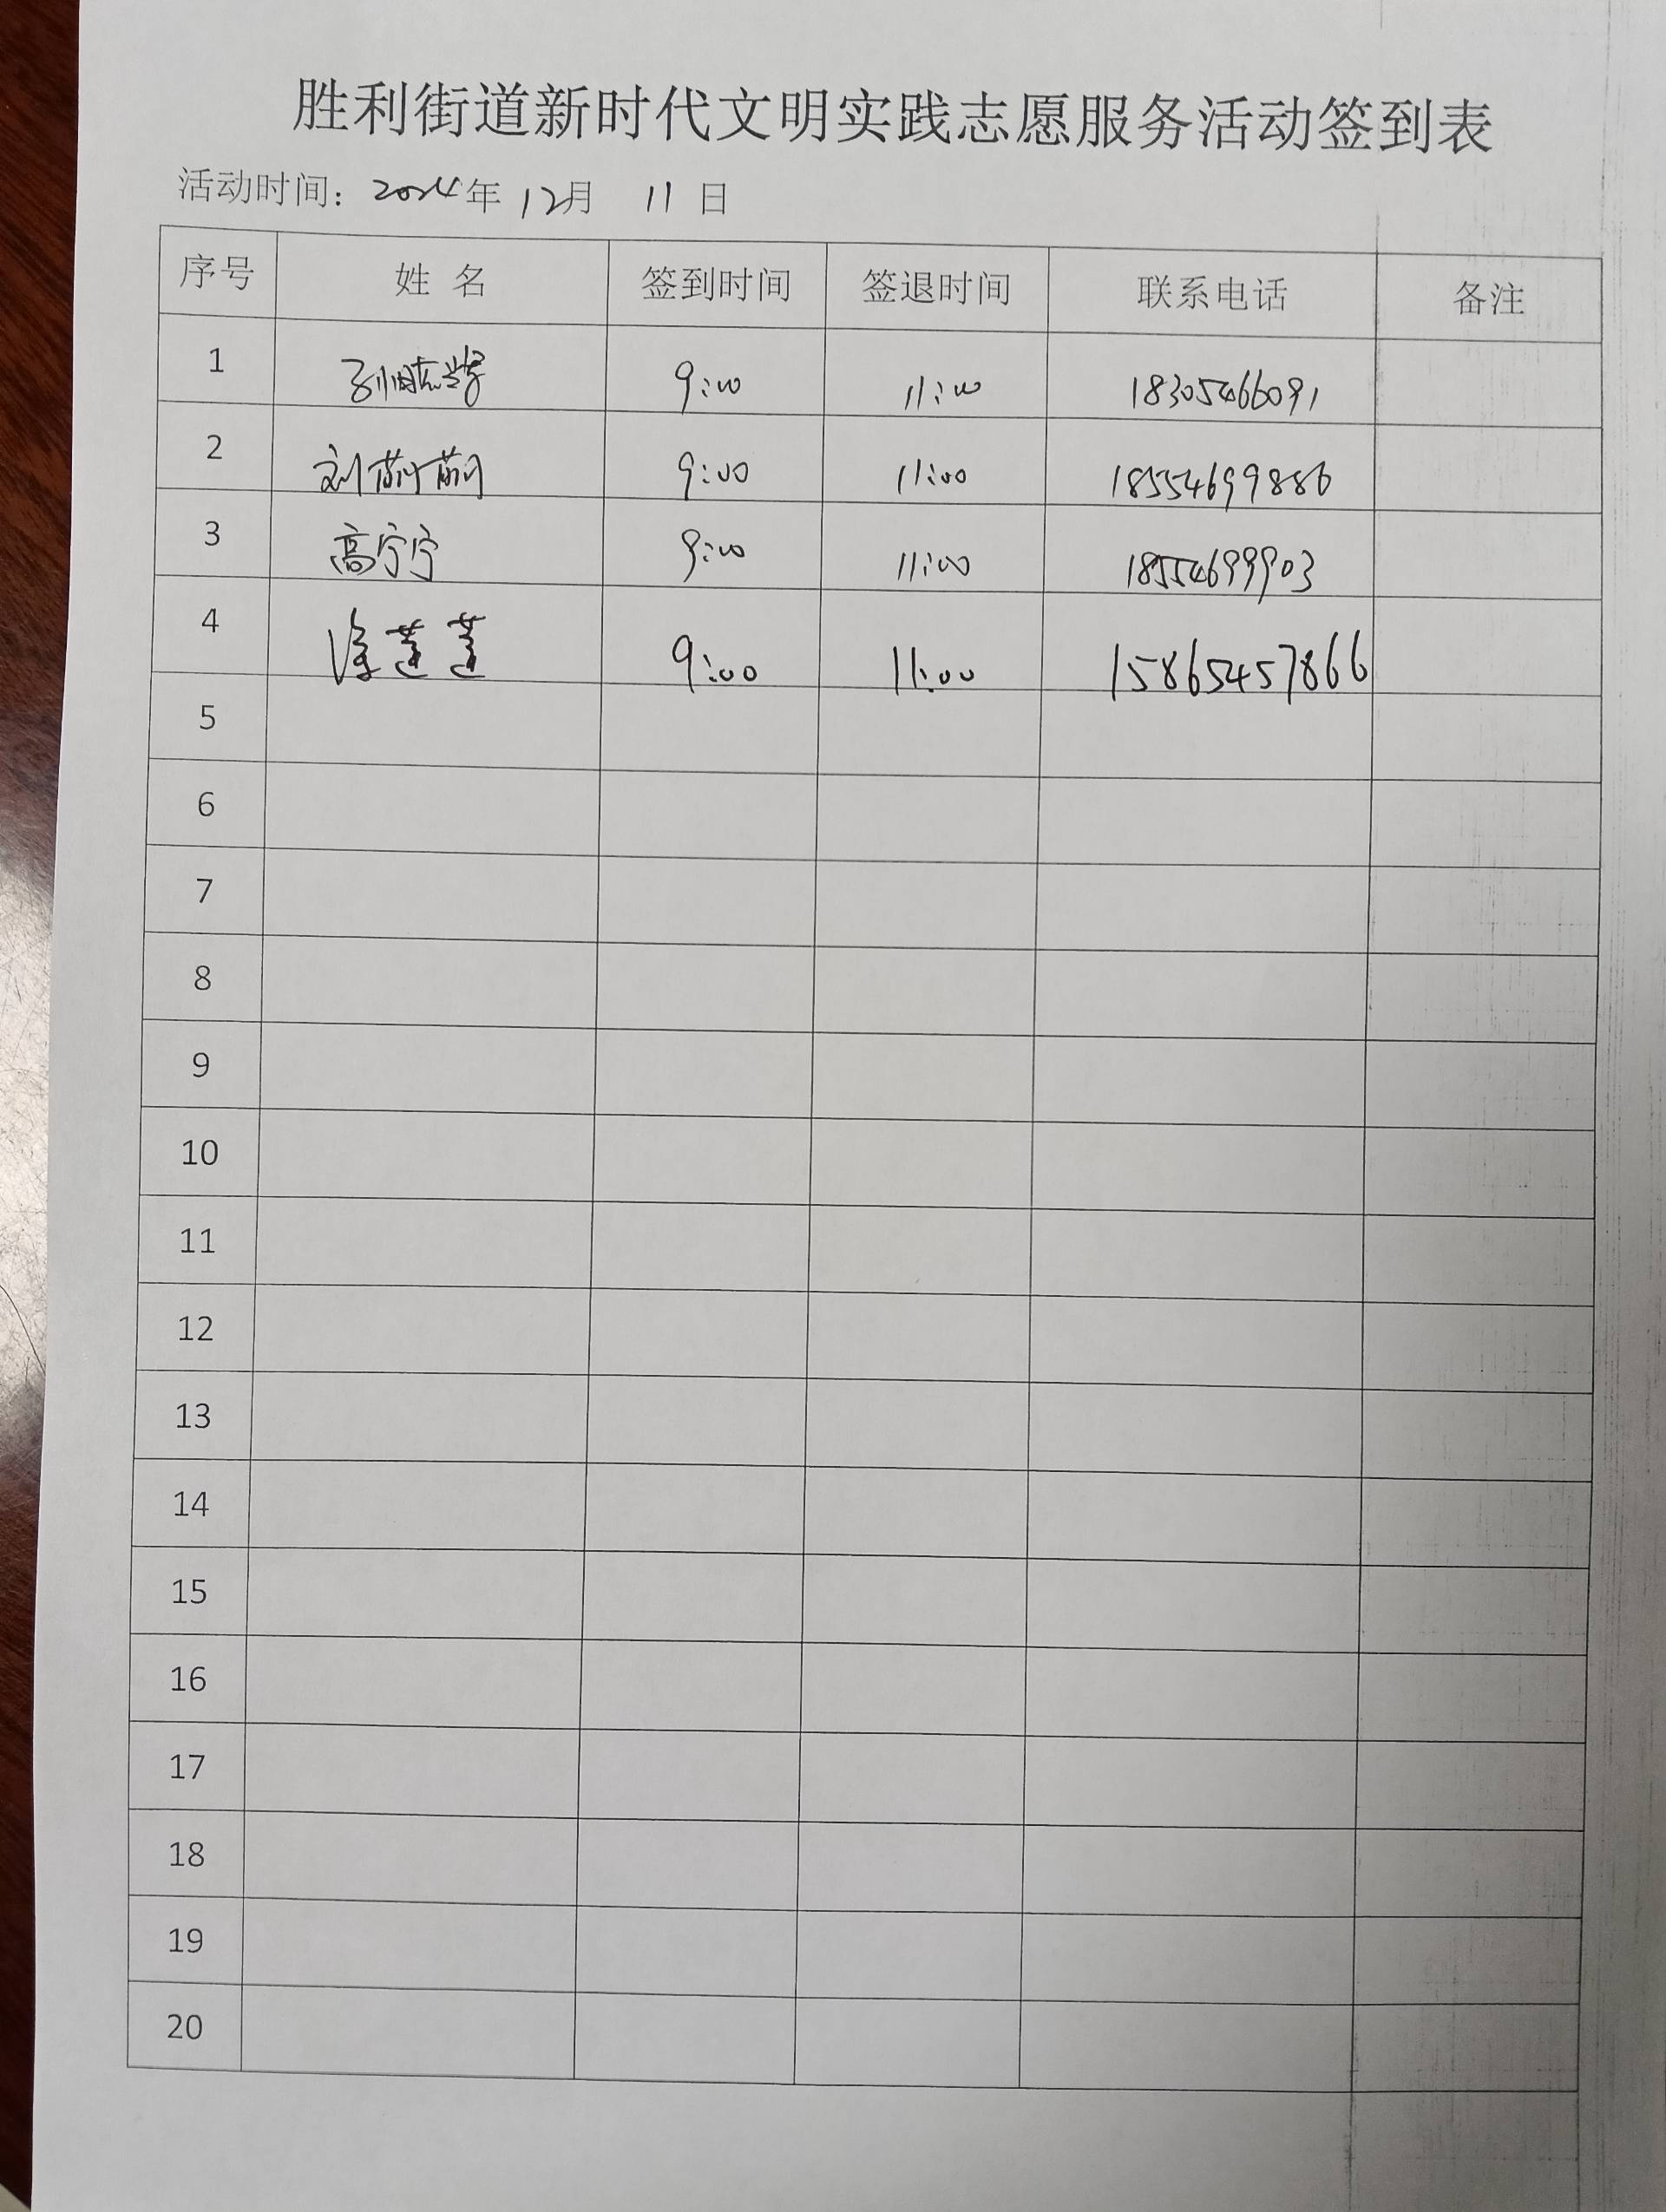 胜利街道新时代文明实践志愿服务活动签到表
活动时间：2024年 12月 11 日
序号 姓 名 签到时间 签退时间 联系电话 备注
1 9:00 11:00 18305466091
2 刘 9:00 11:00 18554699886
3 高宁宁 9:00 11:00 18554699903
4 徐莲莲 9:00 11:00 15865457866
5
6
7
8
9
10
11
12
13
14
15
16
17
18
19
20